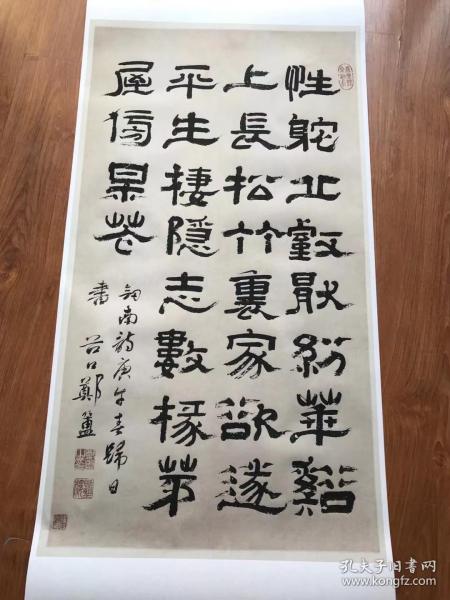 性躭丘壑猒紛華谿
上長松竹裏家欲遂
平生棲隱志數椽茅
屋傍某花
劒南詩庚午春歸日
書 谷口鄭簠
孔夫子旧书网
www.kongfz.com